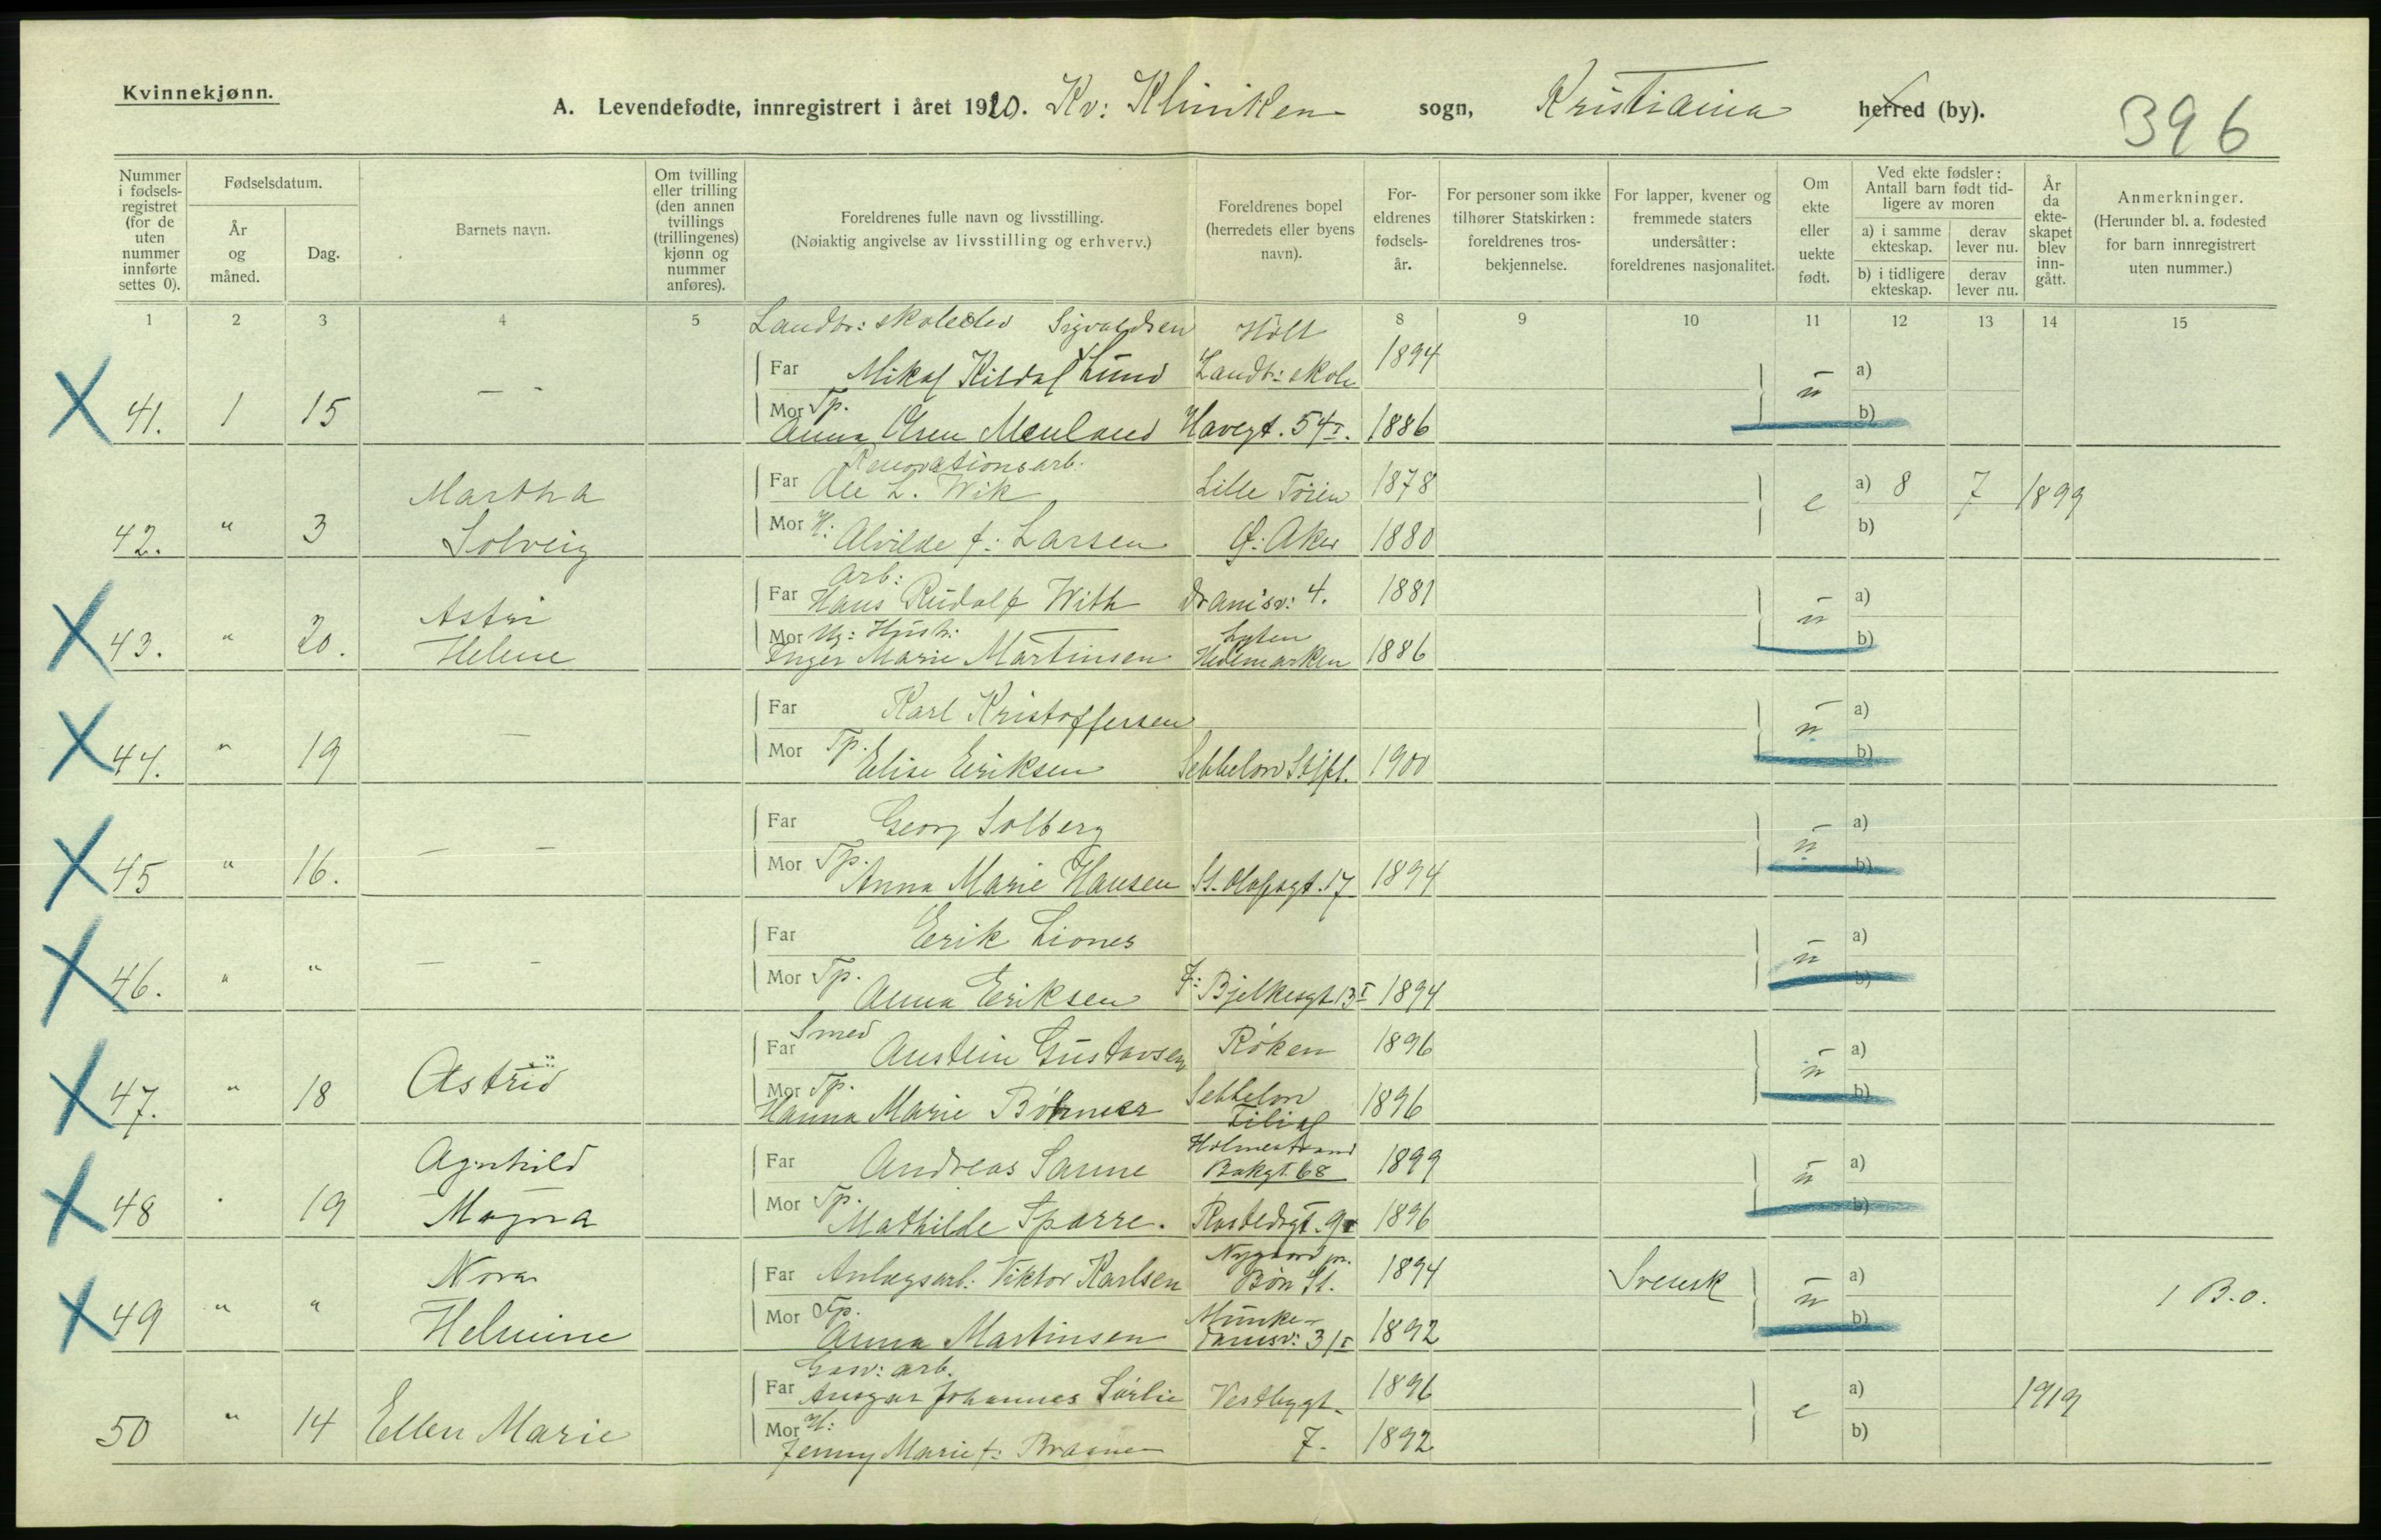 Kvinnekjønn.
A. Levendefødte, innregistrert i året 1920. Kv: Kliniken sogn, Kristiania herred (by).
396
Nummer i fødsels-registret (for de uten nummer innførte settes 0).
Fødselsdatum.
År og måned.
Dag.
Barnets navn.
Om tvilling eller trilling (den annen tvillings (trillingenes) kjønn og nummer anføres).
Foreldrenes fulle navn og livsstilling.
(Nøiaktig angivelse av livsstilling og erhverv.)
Foreldrenes bopel (herredets eller byens navn).
For-eldrenes fødsels-år.
For personer som ikke tilhører Statskirken: foreldrenes tros-bekjennelse.
For lapper, kvener og fremmede staters undersåtter: foreldrenes nasjonalitet.
Om ekte eller uekte født.
Ved ekte fødsler: Antall barn født tid-ligere av moren
a) i samme ekteskap.
derav lever nu.
b) i tidligere ekteskap.
derav lever nu.
År da ekte-skapet blev inn-gått.
Anmerkninger.
(Herunder bl. a. fødested for barn innregistrert uten nummer.)
1 2 3 4 5 8 9 10 11 12 13 14 15
Landbr: skoleelev Sigvaldsen Holt
Far Mikal Kildal Lund Landbr: skole 1894 a)
X 41. 1 15 — - Mor Tp. Anna Olsen Menland Havegt. 54 I. 1886 u b)
Renovationsarb.
Far Ole L. Wik Lille Tøien 1878 a) 8 7 1899
Martha
42. " 3 Solveig Mor H: Alvilde f: Larsen Ø: Aker 1880 e b)
Arb:
Far Hans Rudolf With Dramsv: 4. 1881 a)
Astri
X 43. " 20. Helene Mor Ug: Hush: Inger Marie Martinsen Løten Hedemarken 1886 u b)
Far Karl Kristoffersen a)
X 44. " 19 — Mor Tp. Elise Eriksen Sebbelow Stift. 1900 u b)
Far Georg Solberg a)
X 45 " 16. — — Mor Tp. Anna Marie Hansen St. Olafsgt. 17 1894 u b)
Far Erik Liones a)
X 46. " " — - Mor Tp. Anna Eriksen J: Bjelkesgt 13 I 1894 u b)
Smed
Far Austein Gustavsen Røken 1896 a)
X 47. " 18 Astrid Mor Tp. Hanna Marie Bøhmer Sebbelow Filial 1896 u b)
Agnhild Far Andreas Sanne Holmestrand Bakgt. 68 1899 a)
X 48 " 19 Magna Mor Tp. Mathilde Sparre. Rostedsgt. 9 1896 u b)
Nora Far Anlægsarb: Viktor Karlsen Nygaard pr. Bøn St. 1894 Svensk a)
1 B.o.
X 49 " " Helmine Mor Tp. Anna Martinsen Munke-damsv: 31 I 1892 u b)
Gasv: arb.
Far Ansgar Johannes Sørlie Vestbygt. 1896 a) 1919
50 " 14 Ellen Marie Mor H: Jenny Marie f: Braane 7. 1892 e b)